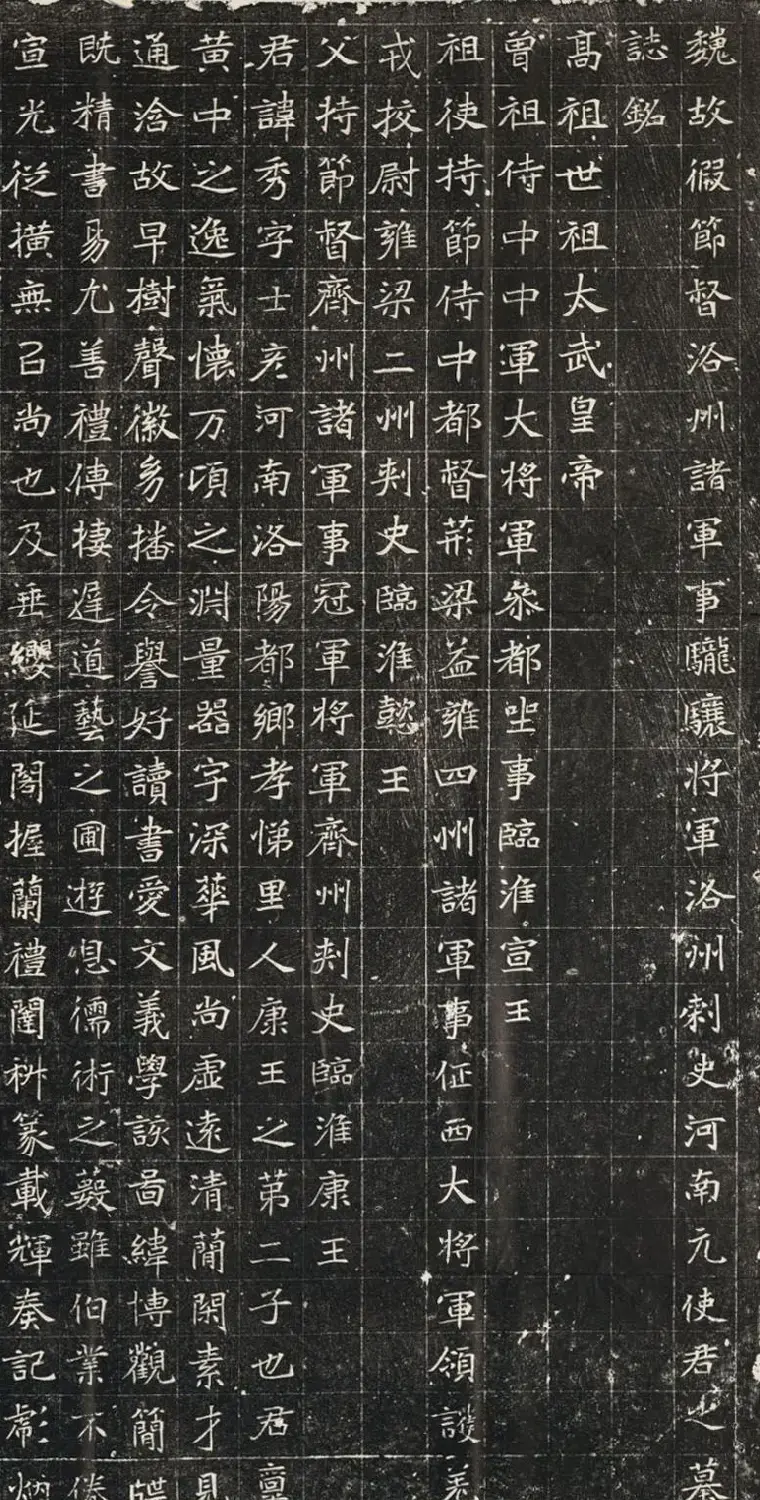 魏故假節督洛州諸軍事驤驤將軍洛州刺史河南元使君之墓
誌銘
高祖世祖太武皇帝
曾祖侍中中軍大將軍叅都坐事臨淮宣王
祖使持節侍中都督荊梁益雍四州諸軍事征西大將軍領護羌
戎校尉雍梁二州刺史臨淮懿王
父持節督齊州諸軍事冠軍將軍齊州刺史臨淮康王
君諱秀字士彥河南洛陽都鄉孝悌里人康王之第二子也君稟
黃中之逸氣懷万頃之淵量器宇深華風尚虛遠清蕳閑素才見
通洽故早樹聲徽多播令譽好讀書愛文義學該啚緯博觀簡牒
既精書易尤善禮傳棲遲道藝之圃遊息儒術之藪雖伯業不倦
宣光從橫無㠯尚也及垂纓延閣握蘭禮闈斞篆載輝奏記彪炳